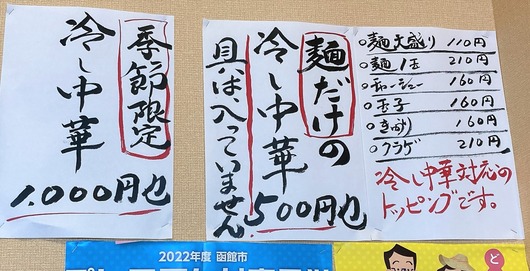 季節限定
冷し中華
1.000円也
麺だけの
冷し中華
具は、入っていません。
500円也
○麺大盛り 110円
○麺1玉 210円
○チャーシュー 160円
○玉子 160円
160円
○クラゲ 210円
冷し中華対応の
トッピングです。
2022年度 函館市